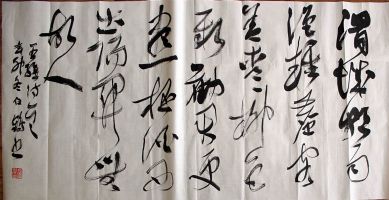 渭城朝雨
浥輕塵客
舍青青柳色
新勸君更
盡一杯酒西
出陽關無
故人
王維詩